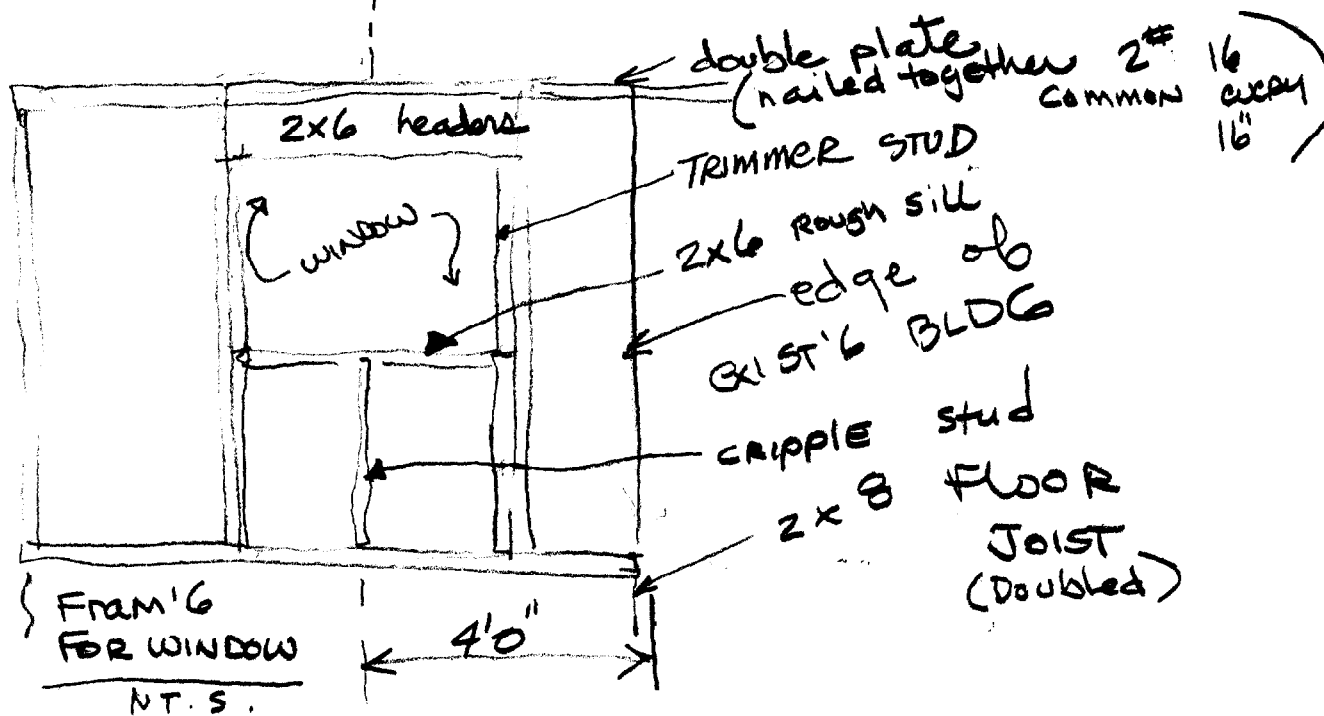 double plate
(nailed together 2# 16
common every
16")
2x6 headers
TRIMMER STUD
WINDOW
2x6 Rough sill
edge of
EXIST'G BLDG
CRIPPLE stud
2x8 FLOOR
JOIST
(Doubled)
Fram'G
FOR WINDOW
N.T.S.
4'0"